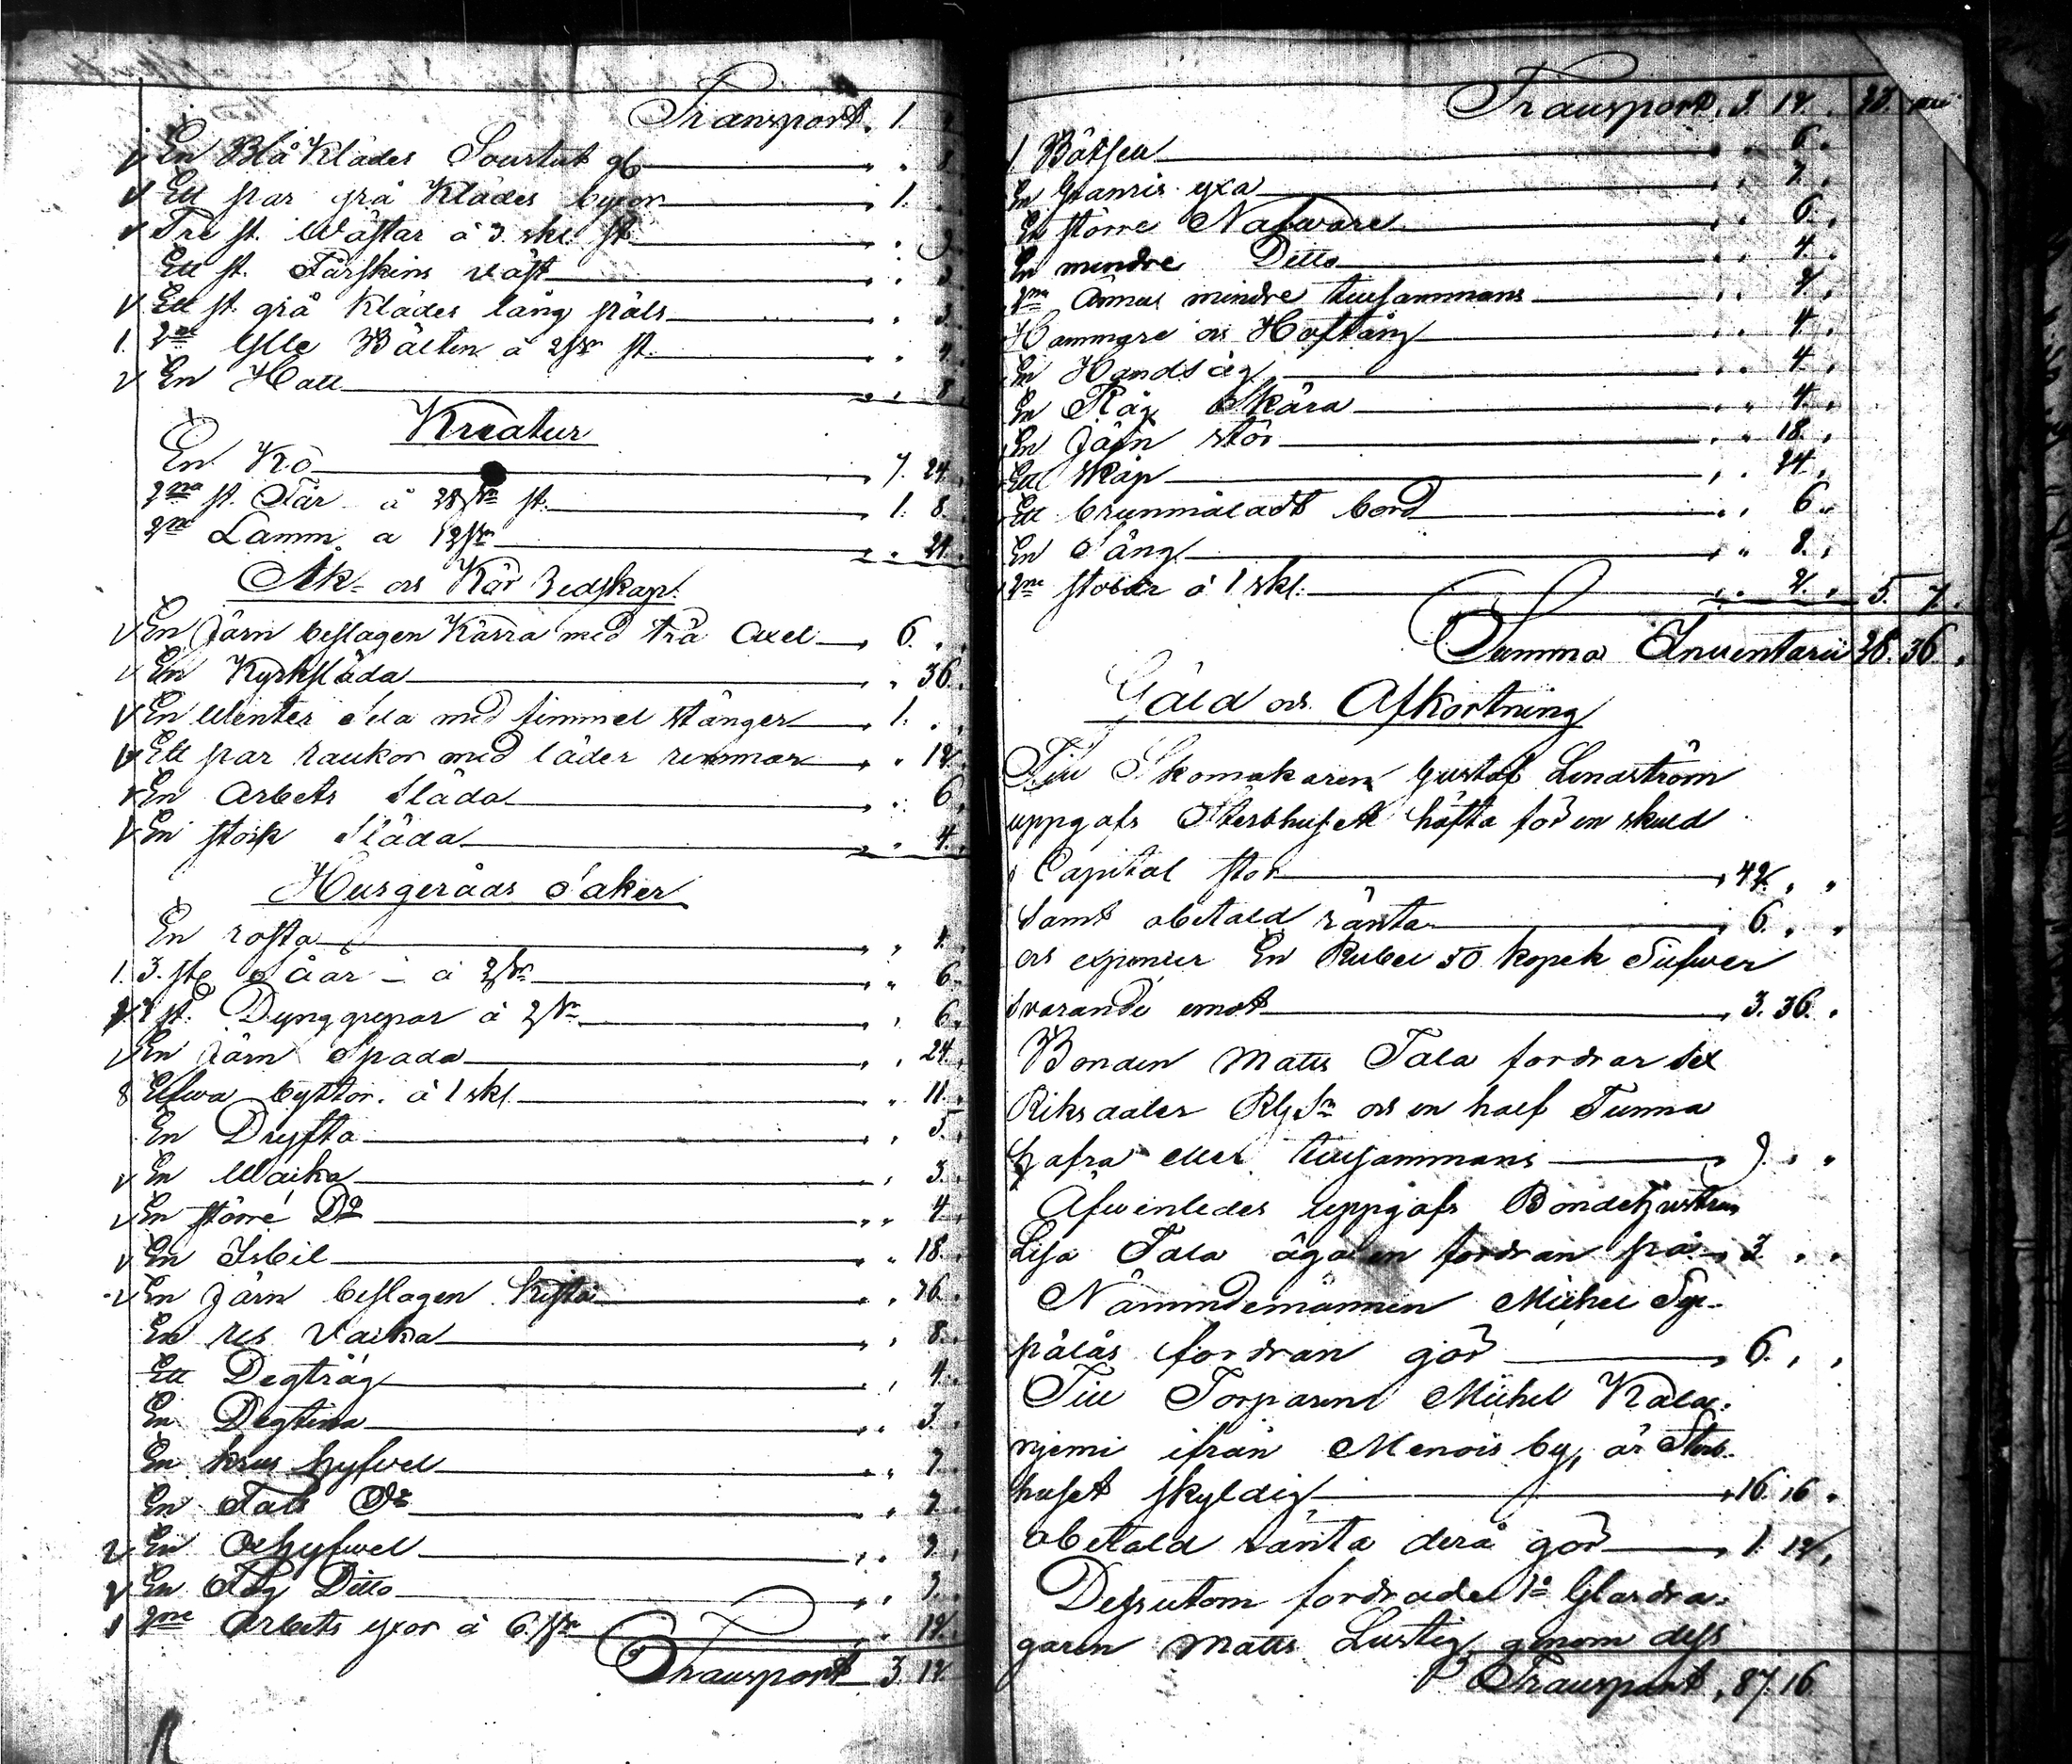 Transport. 1.
En Blå Klädes Sourtut gl " " 8
Ett par grå Klädes byxor " 1. "
Tre st. Wästar á 3 skl st. " " 9
Ett st. Fårskins väst " " 3
Ett st. grå Klädes lång päls " " 3
1. 2ne Ylle Bälten á 2 st. " " 4
En Hatt " " 8
Kreatur
En Ko 7. 24.
2na st. Får á 28 st. 1. 8
2ne Lamm a 12 " " 24.
Åk- os Kör Redskap.
En Järn beslagen Kärra med trä Axel 6. "
En Kyrksläda " 36.
En Wenter Sela med fimmel stänger 1. "
Ett par rankor med läder remmar " 12.
En Arbets Släda " 6
En stock Släda " 4.
Husgeråds Saker
En rosta " 4.
1. 3. st. Såår á 2 " 6
3 st. Dynggrepar á 2 " 6.
En Järn Spada " 24.
8 Elfva byttor. á 1 skl " 11.
En Dryfta " 5.
En Wacka " 3.
En störré Do " 4
En Isbil " 18.
En Järn beslagen kista " 36.
En res Vacka " 8.
Ett Degtråg " 4.
En Degtina " 3.
En krus hyfvel " 2.
En Fals Do " 2.
En Ohyfwel " 3.
En Fog Ditto " 3.
1 2ne Arbets yxor á 6. " 12.
Transport 3. 12.
Transport. 3. 12. 23.
1 Båtsen " " 6.
En Granris yxa " " 2.
En större Nafware " " 6.
En mindre Ditto " " 4.
2ne Annus mindre tillsammans
Hammare os Hoftång " " 4.
En Handsåg " " 4.
En Råg Skära " " 4.
En Järn stör " " 18.
Ett Skåp " " 24.
Ett brunmåladt bord " " 6.
En Säng " " 8.
2ne stolar á 1 skl. " " 2. 5. 7.
Summa Inventarii 28. 36.
Gäld os Afkortning
Till Skomakaren Gustaf Lindström
uppgafs Sterbhuset häfta för en skuld
i Capital stor 42. " "
samt obetald ränta 6. " "
os expenser En Rubel 50 kopek Silfwer
svarande emot 3. 36.
Bonden Matts Tala fordrar sex
Riksdaler Rgs os en half Tunna
Hafra eller tillsammans 9. " "
Äfwenledes uppgafs Bondehustrun
Lisa Tala äga en fordran på 3. " "
Nämndemannen Michel Sy-
pälás fordran gör 6. " "
Till Torparen Michel Kala-
njemi ifrån Menois by, är Sterb-
huset skyldig 16. 16.
obetald ränta derå gör 1. 12.
Dessutom fordrade Glasdra-
garen Matts Lustig genom dess
Transport, 87. 16.